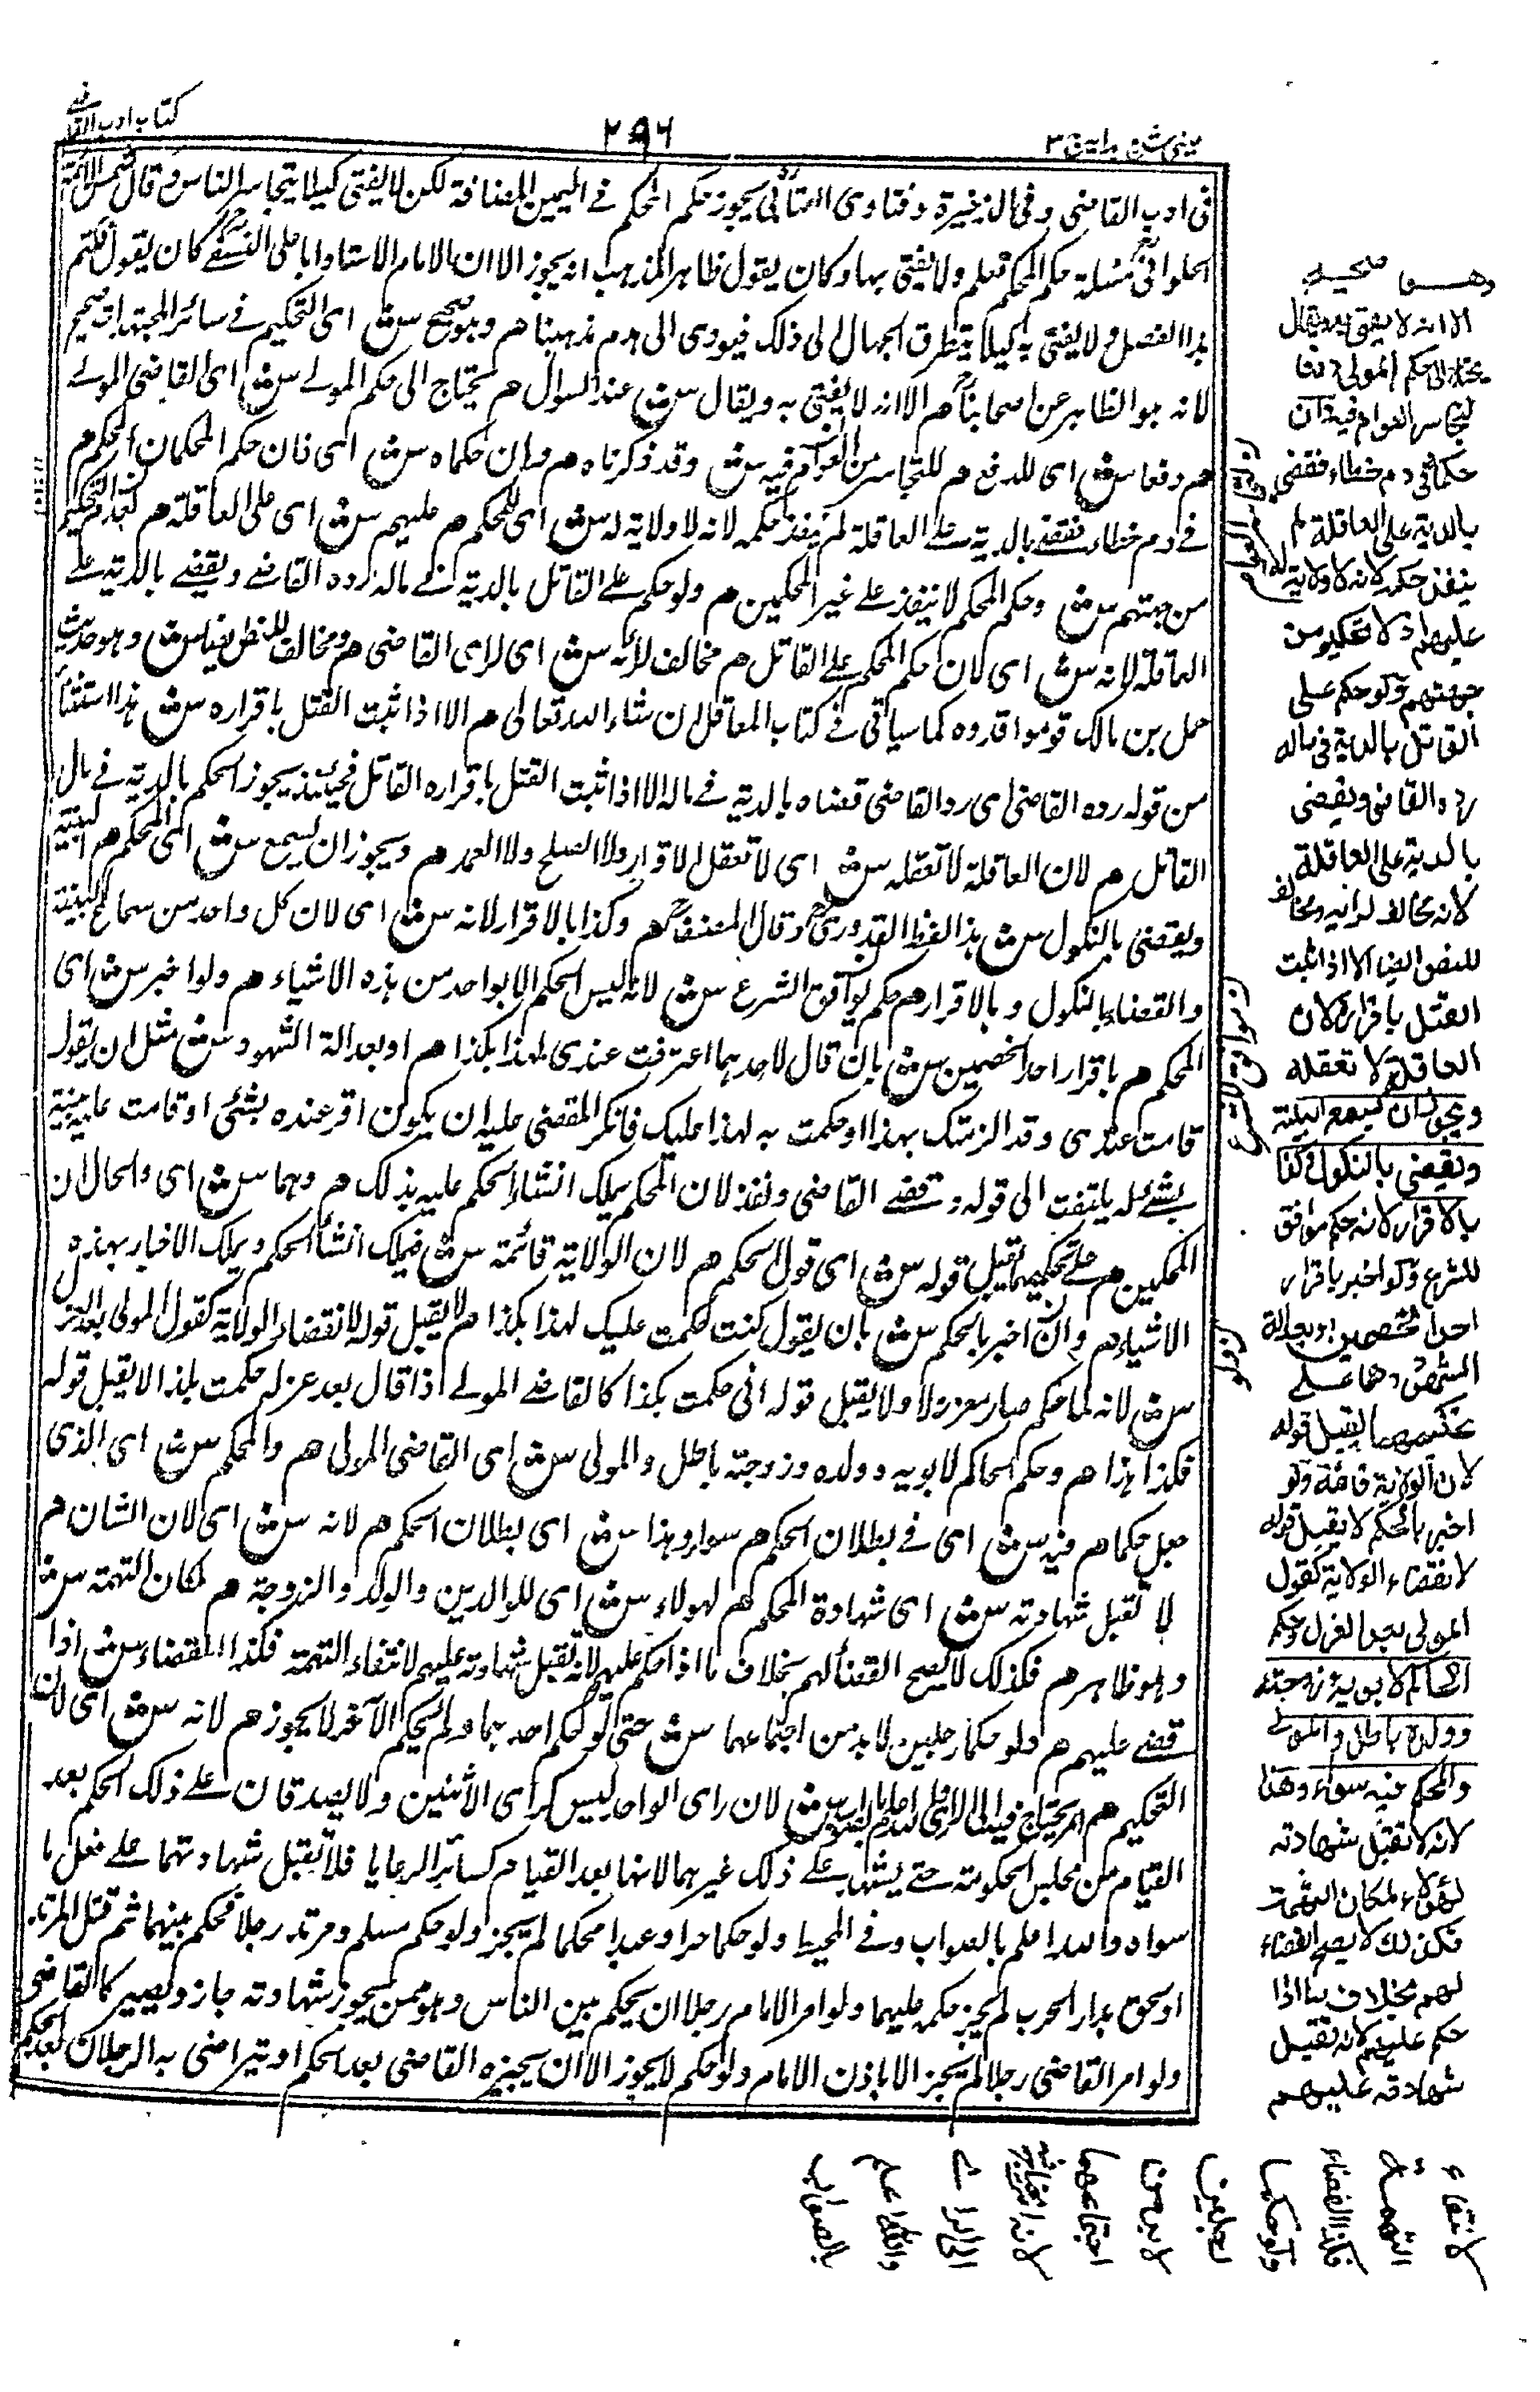 كتاب ادب القاضے
٢٩٦
عينى شرح هداية ج ٣
فى ادب القاضى وفى الذخيرة وفتاوى العتابى يجوز حكم المحكم فے اليمين المضافة لكن لا يفتى كيلا يتجاسر الناس وقال شمس الائمة
الحلوانى مسئلة حكم المحكم تعلم ولا يفتى بها وكان يقول ظاهر المذهب انه يجوز الا ان الامام الاستاد ابا على النسفے كان يقول نكتم
هذا الفصل ولا يفتى به كيلا يتطرق الجهال الى ذلك فيودى الى هدم مذهبنا هم وهو صحيح ش اى التحكيم فے سائر المجتهدات صحيح
لانه هو الظاهر عن اصحابنا هم الا انه لا يفتى به ويقال ش عند السوال هم يحتاج الى حكم المولے ش اى القاضى المولے
هم دفعا ش اى للدفع هم للتجاسر من العوام فيه ش وقد ذكرناه هم وان حكماه ش اى فان حكم المحكمان المحكم هم
فے دم خطاء فقضے بالدية علے العاقلة لم ينفذ حكمه لانه لا ولاية له ش اى للمحكم هم عليهم ش اى على العاقلة هم لعدم التحكيم
من جهتهم ش وحكم المحكم لا ينفذ علے غير المحكمين هم ولو حكم علے القاتل بالدية فے ماله رده القاضے ويقضے بالدية علے
العاقلة لانه ش اى لان حكم المحكم علے القاتل هم مخالف لرائه ش اى لراى القاضى هم ومخالف للنص ايضا ش وهو حديث
حمل بن مالك قوموا فدوه كما سياتى فے كتاب المعاقل ان شاء الله تعالى هم الا اذا ثبت القتل باقراره ش هذا استثناء
من قوله رده القاضى اى رد القاضى قضاه بالدية فے ماله الا اذا ثبت القتل باقراره القاتل فحينئذ يجوز الحكم بالدية فے مال
القاتل هم لان العاقلة لا تعقله ش اى لا تعقل الاقرار ولا الصلح ولا العمد هم ويجوز ان يسمع ش اى المحكم هم البينة
ويقضى بالنكول ش هذا لفظ القدورى وقال المصنف هم وكذا بالاقرار لانه ش اى لان كل واحد من سماع البينة
والقضاء بالنكول وبالاقرار هم حكم يوافق الشرع ش لانه ليس الحكم الا بواحد من هذه الاشياء هم ولو اخبر ش اى
المحكم هم باقرار احد الخصمين ش بان قال لاحدهما اعترفت عندى لهذا بكذا هم او بعدالة الشهود ش مثل ان يقول
قامت عندى وقد الزمتك بهذا او حكمت به لهذا عليك فانكر المقضى عليه ان يكون اقر عنده بشئى او قامت عليه بينة
بشئے لم يلتفت الى قوله وقضے القاضى ونفذ لان المحكم يملك انشاء الحكم عليه بذلك هم وهما ش اى والحال ان
المحكمين هم علے تحكيمهما يقبل قوله ش اى قول الحكم هم لان الولاية قائمة ش فيملك انشاء الحكم ويملك الاخبار بهذه
الاشياء هم وان اخبر بالحكم ش بان يقول كنت حكمت عليك لهذا بكذا هم لا يقبل قوله لانقضاء الولاية كقول المولى بعد العزل
ش لانه لما حكم صار معزولا ولا يقبل قوله انى حكمت بكذا كالقاضے المولے اذا قال بعد عزله حكمت بكذا لا يقبل قوله
فكذا هذا هم وحكم الحاكم لابويه وولده وزوجته باطل والمولى ش اى القاضى المولى هم والمحكم ش اى الذى
جعل حكما هم فيه ش اى فے بطلان الحكم هم سواء وهذا ش اى بطلان الحكم هم لانه ش اى لان الشان هم
لا تقبل شهادته ش اى شهادة المحكم هم لهولاء ش اى للوالدين والولد والزوجة هم لمكان التهمة ش
وهو ظاهر هم فكذلك لا يصح القضاء لهم بخلاف ما اذا حكم عليهم لانه تقبل شهادته عليهم لانتفاء التهمة فكذا القضاء ش اذا
قضے عليهم هم ولو حكما رجلين لا بد من اجتماعهما ش حتى لو حكم احدهما ولم يحكم الآخر لا يجوز هم لانه ش اى لان
التحكيم هم امر يحتاج فيه الى الراى والله اعلم بالصواب ش لان راى الواحد ليس كراى الاثنين ولا يصدقان علے ذلك الحكم بعد
القيام من مجلس الحكومة حتے يشهد علے ذلك غيرهما لانهما بعد القيام كسائر الرعايا فلا تقبل شهادتهما علے فعل ما
سواه والله اعلم بالصواب وفے المحيط ولو حكما حرا وعبدا محكما لم يجز ولو حكم مسلم ومرتد رجلا فحكم بينهما ثم قتل المرتد
او لحق بدار الحرب لم يجز حكمه عليهما ولو امر الامام رجلا ان يحكم بين الناس وهو ممن يجوز شهادته جاز ويصير كالقاضى
ولو امر القاضى رجلا لم يجز الا باذن الامام ولو حكم لا يجوز الا ان يجيزه القاضى بعد الحكم او يتراضى به الرجلان بعد الحكم
وهو صحيح
الا انه لا يفتى به ويقال
يحتاج الى حكم المولى دفعا
لتجاسر العوام فيه وان
حكما فى دم خطاء فقضى
بالدية على العاقلة لم
ينفذ حكمه لانه لا ولاية له
عليهم اذ لا تحكيم من
جهتهم ولو حكم على
القاتل بالدية فى ماله
رده القاضى ويقضى
بالدية على العاقلة
لانه مخالف لرائه ومخالف
للنص ايضا الا اذا ثبت
القتل باقراره لان
العاقلة لا تعقله
ويجوز ان يسمع البينة
ويقضى بالنكول وكذا
بالاقرار لانه حكم موافق
للشرع ولو اخبر باقرار
احد الخصمين او بعدالة
الشهود وهما على
تحكيمهما يقبل قوله
لان الولاية قائمة ولو
اخبر بالحكم لا يقبل قوله
لانقضاء الولاية كقول
المولى بعد العزل وحكم
الحاكم لابويه وزوجته
وولده باطل والمولے
والمحكم فيه سواء وهذا
لانه لا تقبل شهادته
لهؤلاء لمكان التهمة
فكذلك لا يصح القضاء
لهم بخلاف ما اذا
حكم عليهم لانه تقبل
شهادته عليهم
لانتفاء
التهمة
فكذا القضاء
ولو حكما
رجلين
لا بد من
اجتماعهما
لانه امر يحتاج فيه
الى الراے
والله اعلم
بالصواب